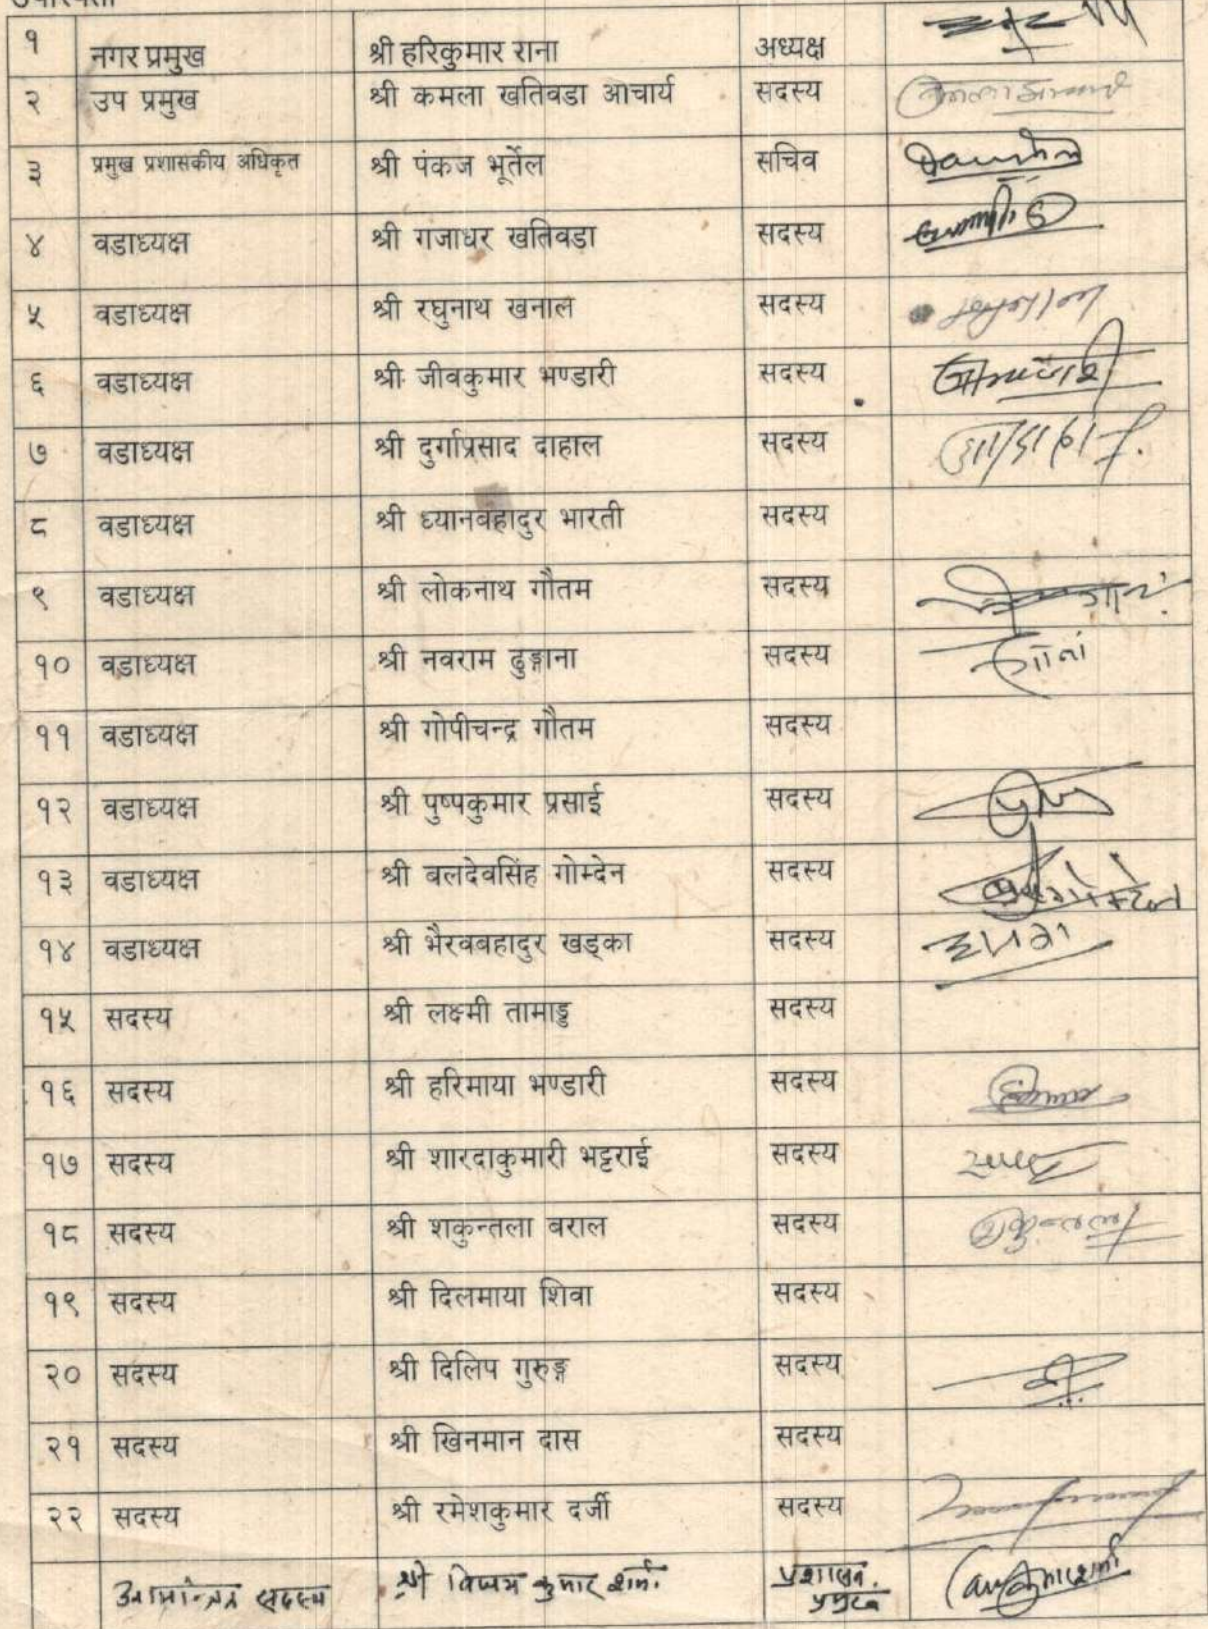 १ नगर प्रमुख श्री हरिकुमार राना अध्यक्ष
२ उप प्रमुख श्री कमला खतिवडा आचार्य सदस्य
३ प्रमुख प्रशासकीय अधिकृत श्री पंकज भूर्तेल सचिव
४ वडाध्यक्ष श्री गजाधर खतिवडा सदस्य
५ वडाध्यक्ष श्री रघुनाथ खनाल सदस्य
६ वडाध्यक्ष श्री जीवकुमार भण्डारी सदस्य
७ वडाध्यक्ष श्री दुर्गाप्रसाद दाहाल सदस्य
८ वडाध्यक्ष श्री ध्यानवहादुर भारती सदस्य
९ वडाध्यक्ष श्री लोकनाथ गौतम सदस्य
१० वडाध्यक्ष श्री नवराम ढुङ्गाना सदस्य
११ वडाध्यक्ष श्री गोपीचन्द्र गौतम सदस्य
१२ वडाध्यक्ष श्री पुष्पकुमार प्रसाई सदस्य
१३ वडाध्यक्ष श्री बलदेवसिंह गोम्देन सदस्य
१४ वडाध्यक्ष श्री भैरवबहादुर खड्का सदस्य
१५ सदस्य श्री लक्ष्मी तामाङ्ग सदस्य
१६ सदस्य श्री हरिमाया भण्डारी सदस्य
१७ सदस्य श्री शारदाकुमारी भट्टराई सदस्य
१८ सदस्य श्री शकुन्तला बराल सदस्य शकुन्तला
१९ सदस्य श्री दिलमाया शिवा सदस्य
२० सदस्य श्री दिलिप गुरुङ्ग सदस्य
२१ सदस्य श्री खिनमान दास सदस्य
२२ सदस्य श्री रमेशकुमार दर्जी सदस्य
सदस्य श्री कुमार शर्मा